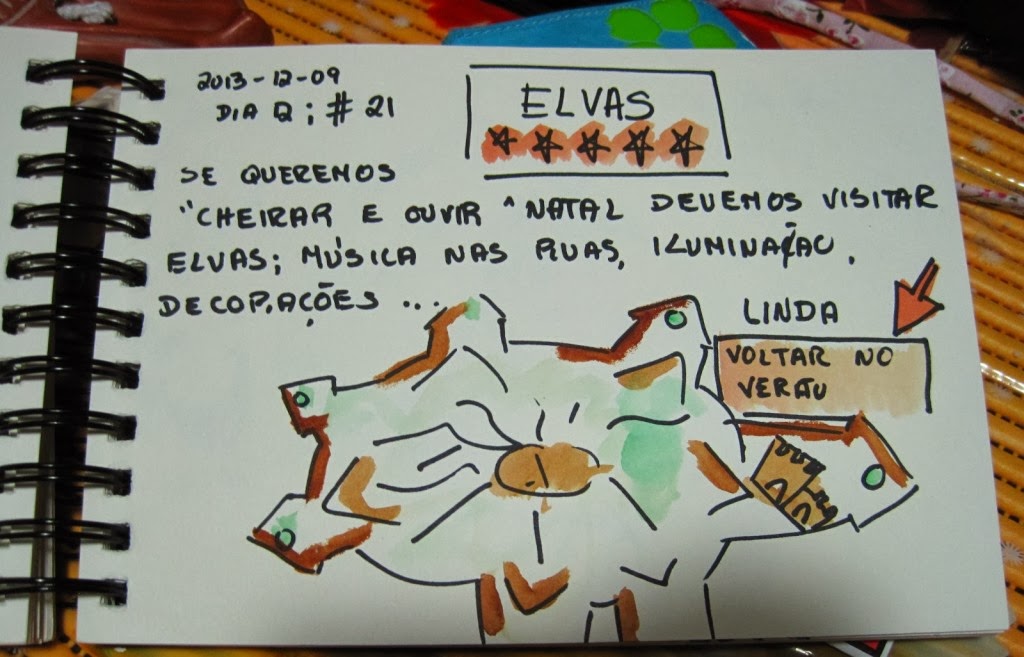 2013-12-09
DIA 2; # 21
ELVAS
SE QUEREMOS
"CHEIRAR E OUVIR ^ NATAL DEVEMOS VISITAR
ELVAS; MÚSICA NAS RUAS, ILUMINAÇÃO,
DECORAÇÕES ...
LINDA
VOLTAR NO
VERÃO